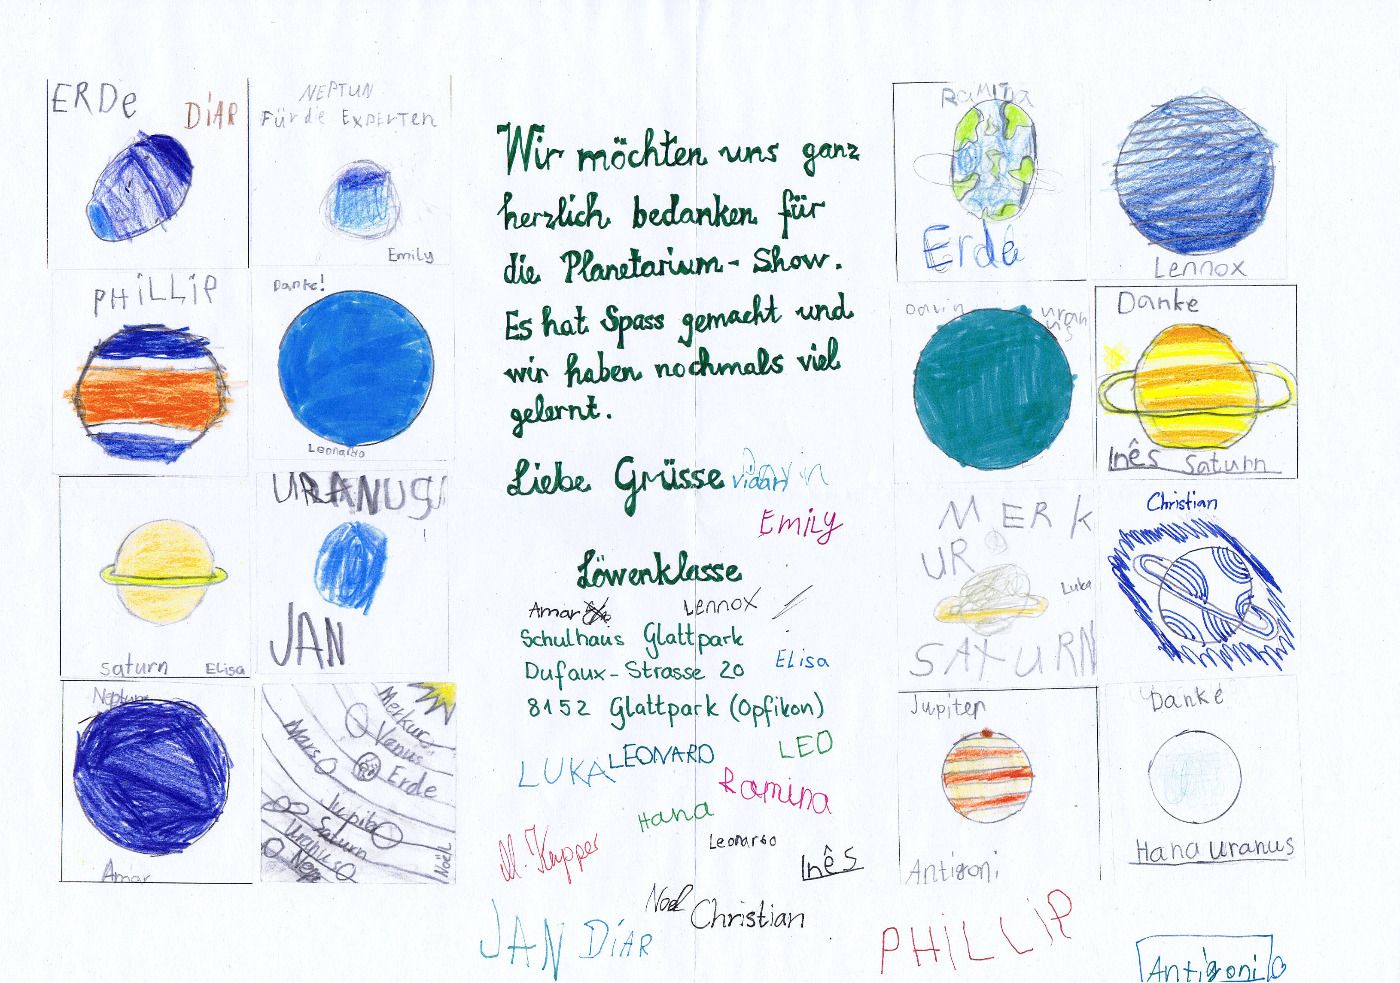 ERDe
DiAR
NEPTUN
Für die EXPERTEN
Emily
PHiLLiP
Danke!
Leonardo
saturn Elisa
URANUS
JAN
Neptun
Amar
Merkur
Venus
Erde
Mars
Jupiter
Saturn
Uranus
Nep
Noël
Wir möchten uns ganz
herzlich bedanken für
die Planetarium-Show.
Es hat Spass gemacht und
wir haben nochmals viel
gelernt.
Liebe Grüsse
EMiLY
Löwenklasse
Amar
Lennox
Schulhaus Glattpark
Dufaux-Strasse 20
ELisa
8152 Glattpark (Opfikon)
LUKA
LEONARD
LEO
Ramina
Hana
Leonardo
M. Kupper
Inês
Noel
Christian
JAN
DiAR
PHiLLiP
Antigoni
RAMINA
Erde
Lennox
Davin
uran
us
Danke
Inês Saturn
MERK
UR
Luka
SATURN
Christian
Jupiter
Antigoni
Danke
Hana uranus